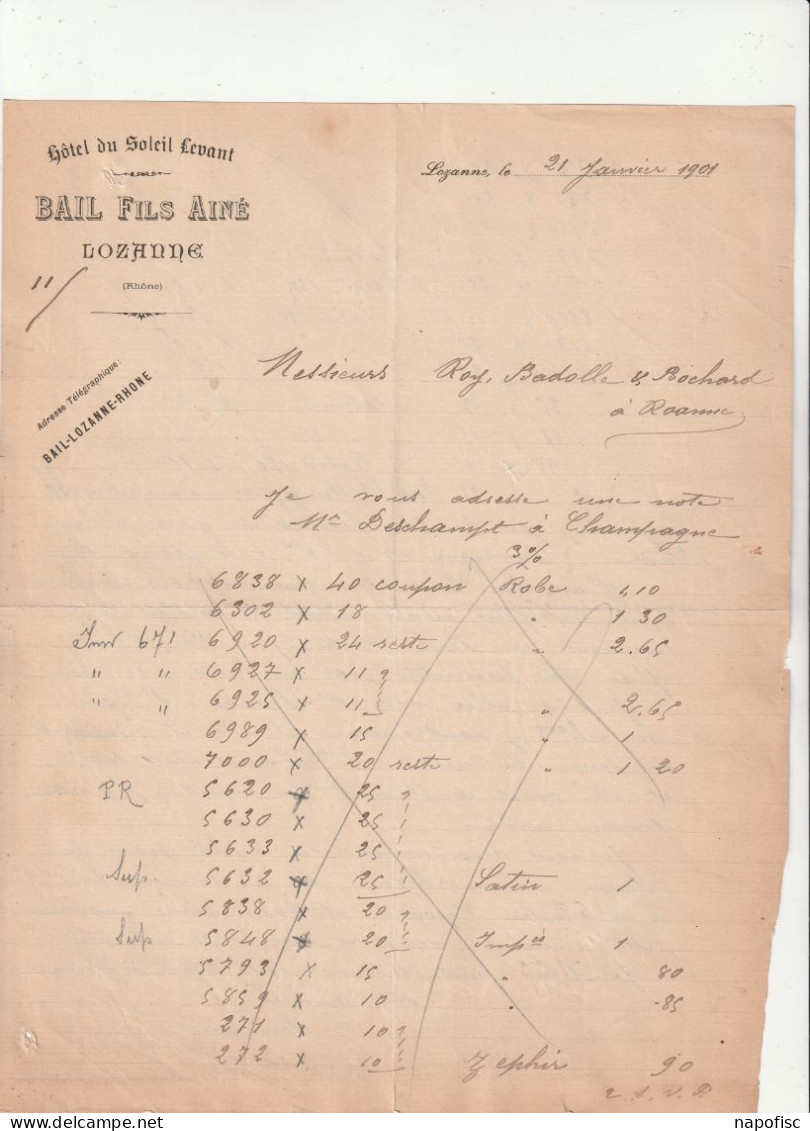 Hôtel du Soleil Levant
BAIL FILS AINÉ
LOZANNE
(Rhône)
11/
Lozanne, le 21 Janvier 1901
Adresse Télégraphique:
BAIL-LOZANNE-RHONE
Messieurs Roy, Badolle & Rochard
à Roanne
Je vous adresse une note
Mr Deschampt à Champagne
3%
6838 x 40 coupon Robe 1,10
6302 x 18 " 1 30
Inv 671 6920 x 24 reste " 2.65
" " 6927 x 11
" " 6925 x 11 " 2.65
6989 x 15 " 1
7000 x 20 reste " 1 20
PR 5620 x 25
5630 x 25
5633 x 25
Sup. 5632 x 25 Satin 1
5838 x 20
Sup 5848 x 20 Impés 1
5793 x 15 " 80
5859 x 10 " -85
271 x 10
272 x 10 Zephir 90
T. S. V. P.
napofisc